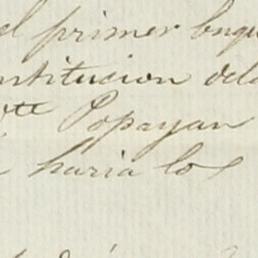 el primer buqu
nstitucion dela
Popayan
haria los